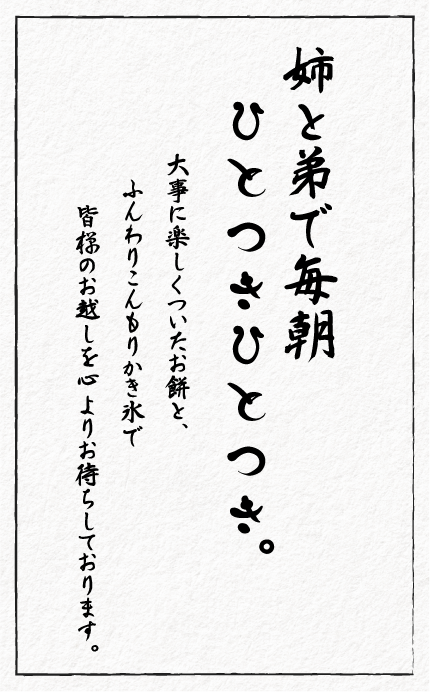 姉と弟で毎朝
ひとつきひとつき。
大事に楽しくついたお餅と、
ふんわりこんもりかき氷で
皆様のお越しを心よりお待ちしております。